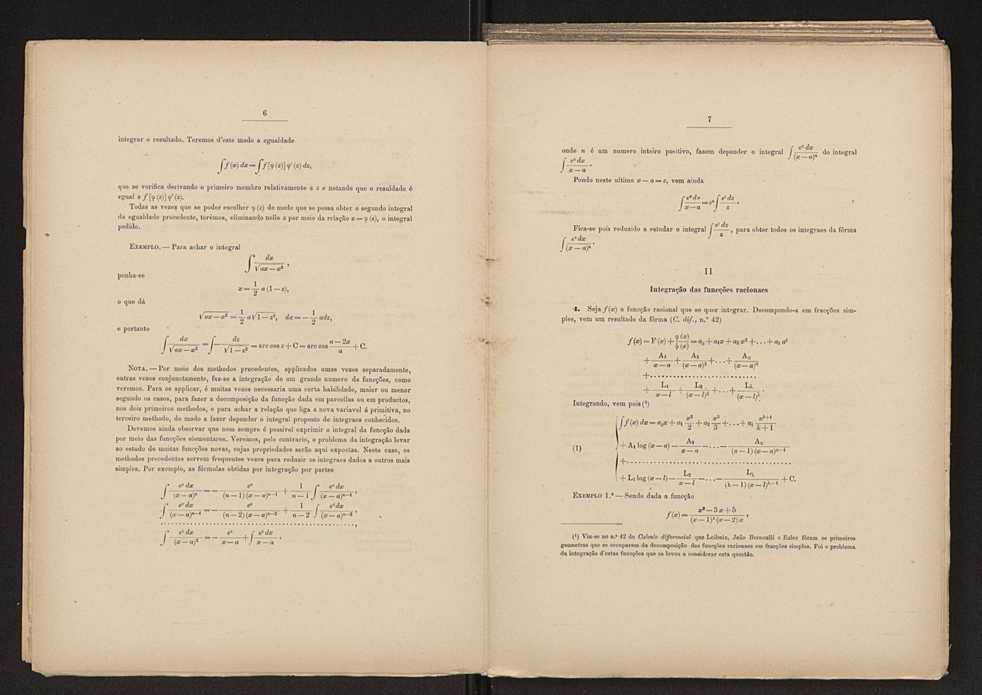 6
integrar o resultado. Teremos d'este modo a egualdade
∫ f (x) dx = ∫ f [φ (z)] φ' (z) dz,
que se verifica derivando o primeiro membro relativamente a z e notando que o resuldade é
egual a f [φ (z)] φ' (z).
Todas as vezes que se poder escolher φ (z) de modo que se possa obter o segundo integral
da egualdade precedente, teremos, eliminando nelle z por meio da relação x = φ (z), o integral
pedido.
EXEMPLO. — Para achar o integral
∫ dx / √(ax — x²) ,
ponha-se
x = 1/2 a (1 — z),
o que dá
√(ax — x²) = 1/2 a √(1 — z²), dx = — 1/2 adz,
e portanto
∫ dx / √(ax — x²) = ∫ — dz / √(1 — z²) = arc cos z + C = arc cos (a — 2x) / a + C.
NOTA. — Por meio dos methodos precedentes, applicados umas vezes separadamente,
outras vezes conjunctamente, faz-se a integração de um grande numero de funcções, como
veremos. Para os applicar, é muitas vezes necessaria uma certa habilidade, maior ou menor
segundo os casos, para fazer a decomposição da funcção dada em parcellas ou em productos,
nos dois primeiros methodos, e para achar a relação que liga a nova variavel á primitiva, no
terceiro methodo, de modo a fazer depender o integral proposto de integraes conhecidos.
Devemos ainda observar que nem sempre é possivel exprimir o integral da funcção dada
por meio das funcções elementares. Veremos, pelo contrario, o problema da integração levar
ao estudo de muitas funcções novas, cujas propriedades serão aqui expostas. Neste caso, os
methodos precedentes servem frequentes vezes para reduzir os integraes dados a outros mais
simples. Por exemplo, as fórmulas obtidas por integração por partes
∫ eˣ dx / (x — a)ⁿ = — eˣ / (n — 1) (x — a)ⁿ⁻¹ + 1 / (n — 1) ∫ eˣ dx / (x — a)ⁿ⁻¹ ,
∫ eˣ dx / (x — a)ⁿ⁻¹ = — eˣ / (n — 2) (x — a)ⁿ⁻² + 1 / (n — 2) ∫ eˣ dx / (x — a)ⁿ⁻² ,
. . . . . . . . . . . . . . . . . . . . . . . . . . . . . . ,
∫ eˣ dx / (x — a)² = — eˣ / (x — a) + ∫ eˣ dx / (x — a) ,
7
onde n é um numero inteiro positivo, fazem depender o integral ∫ eˣ dx / (x — a)ⁿ do integral
∫ eˣ dx / (x — a) .
Pondo neste ultimo x — a = z, vem ainda
∫ eˣ dx / (x — a) = eᵃ ∫ eᶻ dz / z ,
Fica-se pois reduzido a estudar o integral ∫ eᶻ dz / z , para obter todos os integraes da fórma
∫ eˣ dx / (x — a)ⁿ .
II
Integração das funcções racionaes
4. Seja f (x) a funcção racional que se quer integrar. Decompondo-a em fracções sim-
ples, vem um resultado da fórma (C. dif., n.º 42)
f (x) = F (x) + φ (x) / ψ (x) = a₀ + a₁x + a₂ x² + . . . + aₖ xᵏ
+ A₁ / (x — a) + A₂ / (x — a)² + . . . + Aₐ / (x — a)ᵃ
+ . . . . . . . . . . . . . . . . . . . . . .
+ L₁ / (x — l) + L₂ / (x — l)² + . . . + Lλ / (x — l)^λ .
Integrando, vem pois (¹)
∫ f (x) dx = a₀x + a₁ x²/2 + a₂ x³/3 + . . . + aₖ xᵏ⁺¹ / (k + 1)
(1) + A₁ log (x — a) — A₂ / (x — a) — . . . — Aₐ / (α — 1) (x — a)^(α—1)
+ . . . . . . . . . . . . . . . . . . . . . . . . . . . .
+ L₁ log (x — l) — L₂ / (x — l) — . . . — Lλ / (λ — 1) (x — l)^(λ—1) + C.
EXEMPLO 1.º — Sendo dada a funcção
f (x) = (x² — 3 x + 5) / (x — 1)² (x — 2) x ,
(¹) Viu-se no n.º 42 do Calculo differencial que Leibniz, João Bernoulli e Euler fôram os primeiros
geometras que se occuparam da decomposição das funcções racionaes em fracções simples. Foi o problema
da integração d'estas funcções que os levou a considerar esta questão.